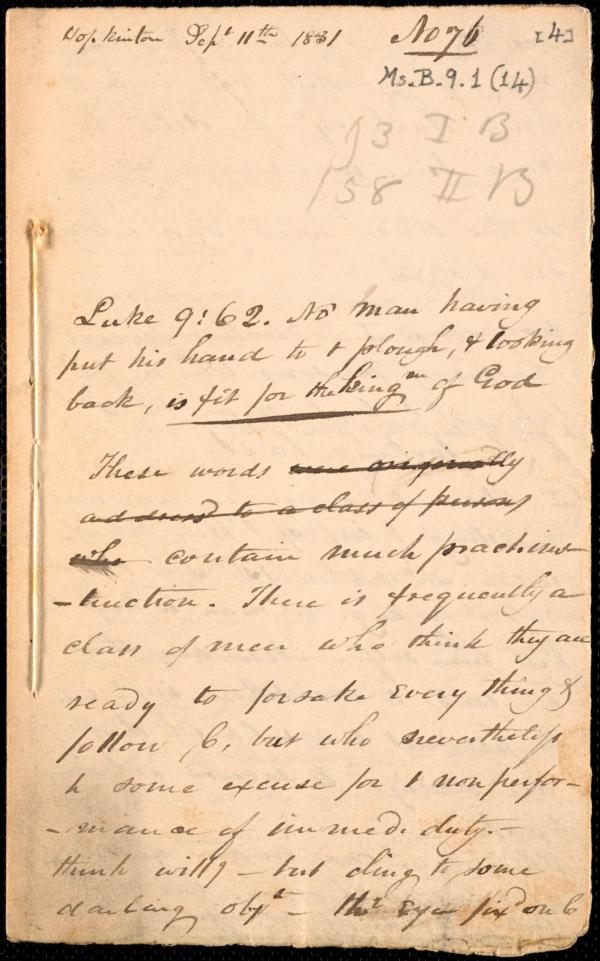 Hopkinton Sept 11th 1831 No 76 [4]
Ms. B. 9. 1 (14)
93 I B
158 II B
Luke 9:62. No man having
put his hand to t plough, & looking
back, is fit for the kingm of God
These words were originally
addressd to a class of persons
who contain much prac ins
-truction. There is frequently a
class of men who think they are
ready to forsake every thing &
follow C, but who nevertheless
h some excuse for t nonperfor-
-mance of immed. duty.-
think willg - but cling to some
darling objt - thr Eye fixd on C